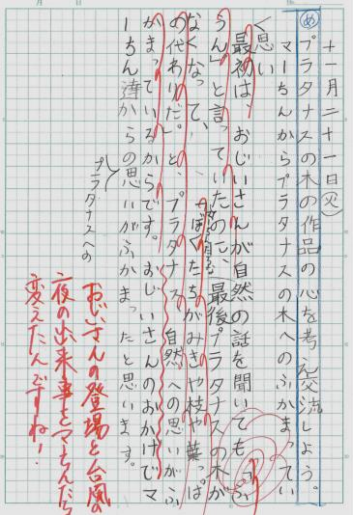 十一月二十一日(火)
め プラタナスの木の作品の心を考え交流しよう。
マーちんからプラタナスの木へのふかまってい
く思い
最初は、おじいさんが自然の話を聞いても「ふ
うん」と言っていたのに、最後プラタナスの木が
なくなって、「ぼくたちがみきや枝や葉っぱ
の代わりだ。」と、プラタナス、自然への思いがふ
かまっているからです。おじいさんのおかげでマ
ーちん達からの思いがふかまったと思います。
プラタナスへの
おじいさんの登場と台風の
夜の出来事がマーちんたちを
変えたんですね!